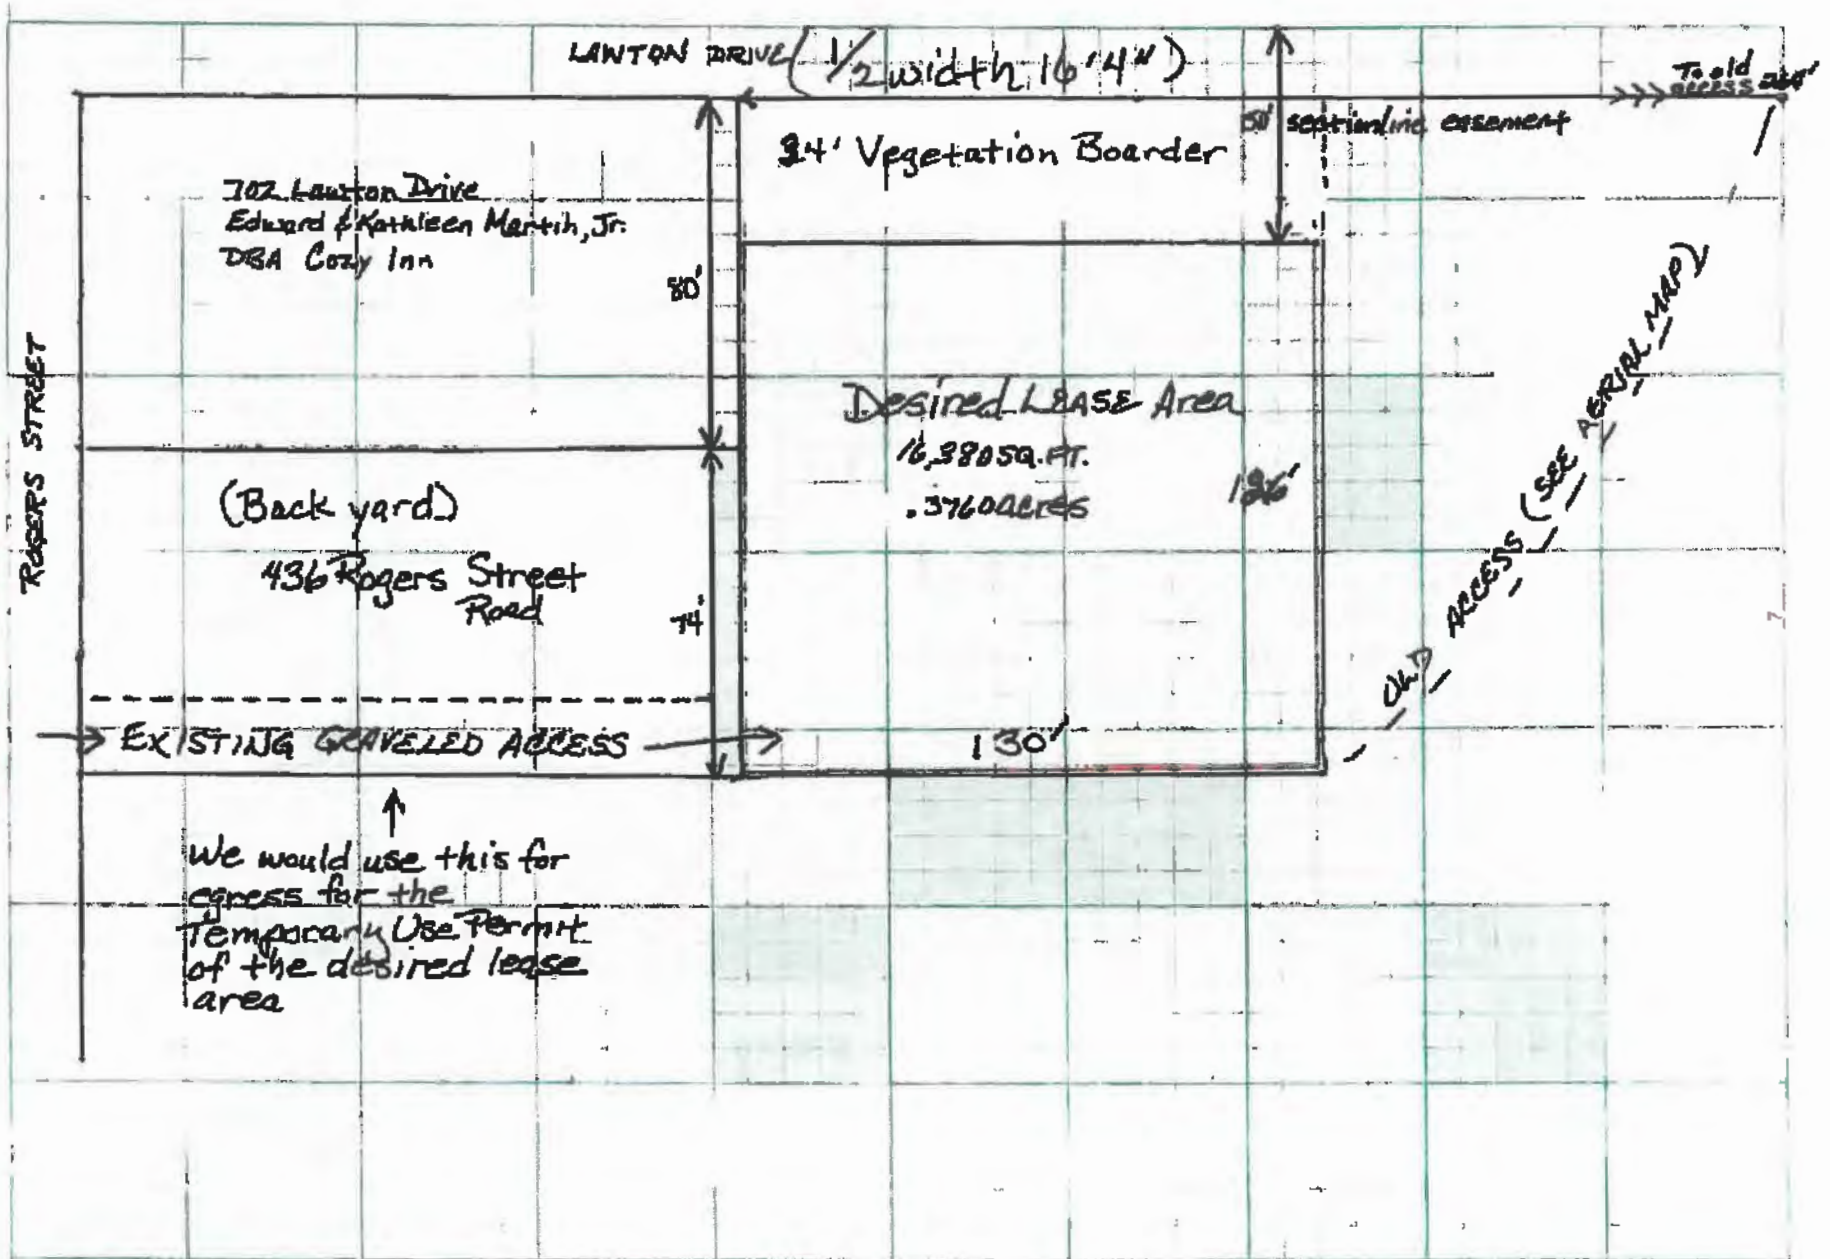 LAWTON DRIVE (1/2 width 16'4")
To old
access
50' sectionline easement
34' Vegetation Boarder
702 Lawton Drive
Edward & Kathleen Martin, Jr.
DBA Cozy Inn
80'
ROGERS STREET
Desired LEASE Area
16,380 SQ. FT.
.3760 acres
126'
(Back yard)
436 Rogers Street
Road
74'
OLD ACCESS (SEE AERIAL MAP)
EXISTING GRAVELED ACCESS
130'
We would use this for
egress for the
Temporary Use Permit
of the desired lease
area